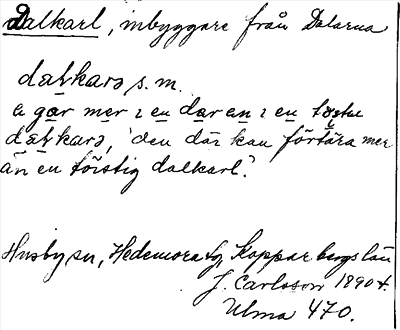 Dalkarl, inbyggare från Dalarna
daƚkarə s. m.
e gar mer ı en dar en ı en tǫstu
daƚkarə, 'den där kan förtära mer
än en törstig dalkarl'.
Husby sn, Hedemora fg, Kopparbergs län
J. Carlsson 1890t.
Ulma 470.